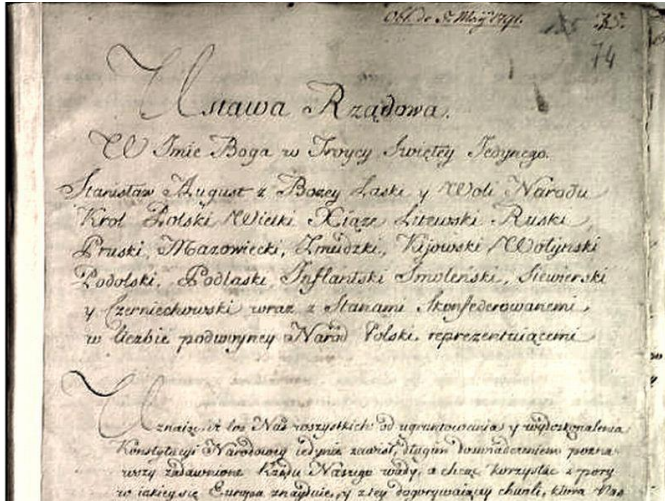 Obl. de 5. Maji 1791.
74
Ustawa Rządowa.
W Imie Boga w Troycy Swiętey Jedynego.
Stanisław August z Bozey Łaski y Woli Narodu
Krol Polski Wielki Xiąze Litewski Ruski
Pruski, Mazowiecki, Zmudzki, Kijowski Wołynski
Podolski, Podlaski, Inflantski Smolenski, Siewierski
y Czerniechowski wraz z Stanami Skonfederowanemi
w liczbie podwoyney Narod Polski reprezentuiącemi
Uznaiąc, iz los Nas wszystkich od ugruntowania y wydoskonalenia
Konstytucyi Narodowey iedynie zawisł, długim doswiadczeniem pozna-
wszy zadawnione Rządu Naszego wady, a chcąc korzystac z pory
w iakiey się Europa znayduie, y z tey dogorywaiącey chwili, ktora Nas